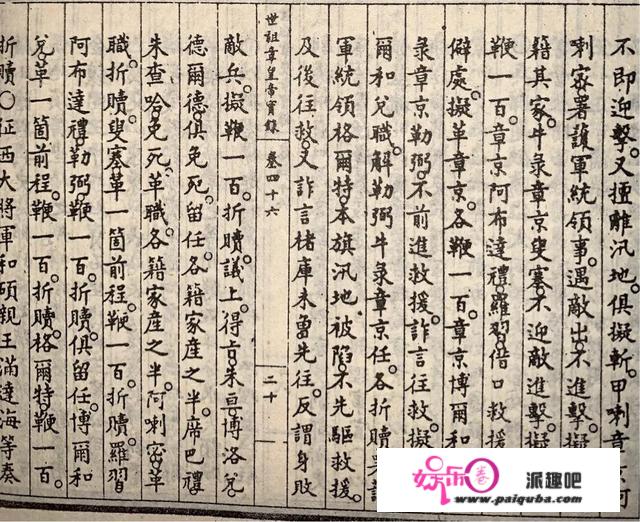 不即迎擊。又擅離汛地。俱擬斬。甲喇章京阿
喇密署護軍統領事。遇敵出不進擊。擬
籍其家。牛彔章京叟塞。不迎敵進擊。擬
鞭一百。章京阿布達禮。羅習。借口救援
僻處。擬革章京。各鞭一百。章京博爾和
彔章京勒弼。不前進救援。詐言往救。擬
爾和兌職。解勒弼牛彔章京任。各折贖。署
軍統領格爾特。本旗汛地被陷。不先驅救援。
及後往救。又詐言楮庫未魯先往。反謂身敗
世祖章皇帝實錄 卷四十六 二十一
敵兵。擬鞭一百。折贖。議上。得旨。朱亘。博洛兌
德爾德。俱免死。留任。各籍家產之半。席巴禮。
朱查哈。免死。革職。各籍家產之半。阿喇密。革
職。折贖。叟塞。革一箇前程。鞭一百。折贖。羅習
阿布達禮。勒弼。鞭一百。折贖。俱留任。博爾和
兌。革一箇前程。鞭一百。折贖。格爾特。鞭一百。
折贖○征西大將軍和碩親王滿達海等奏
娱乐圈 派趣吧
www.paiquba.com